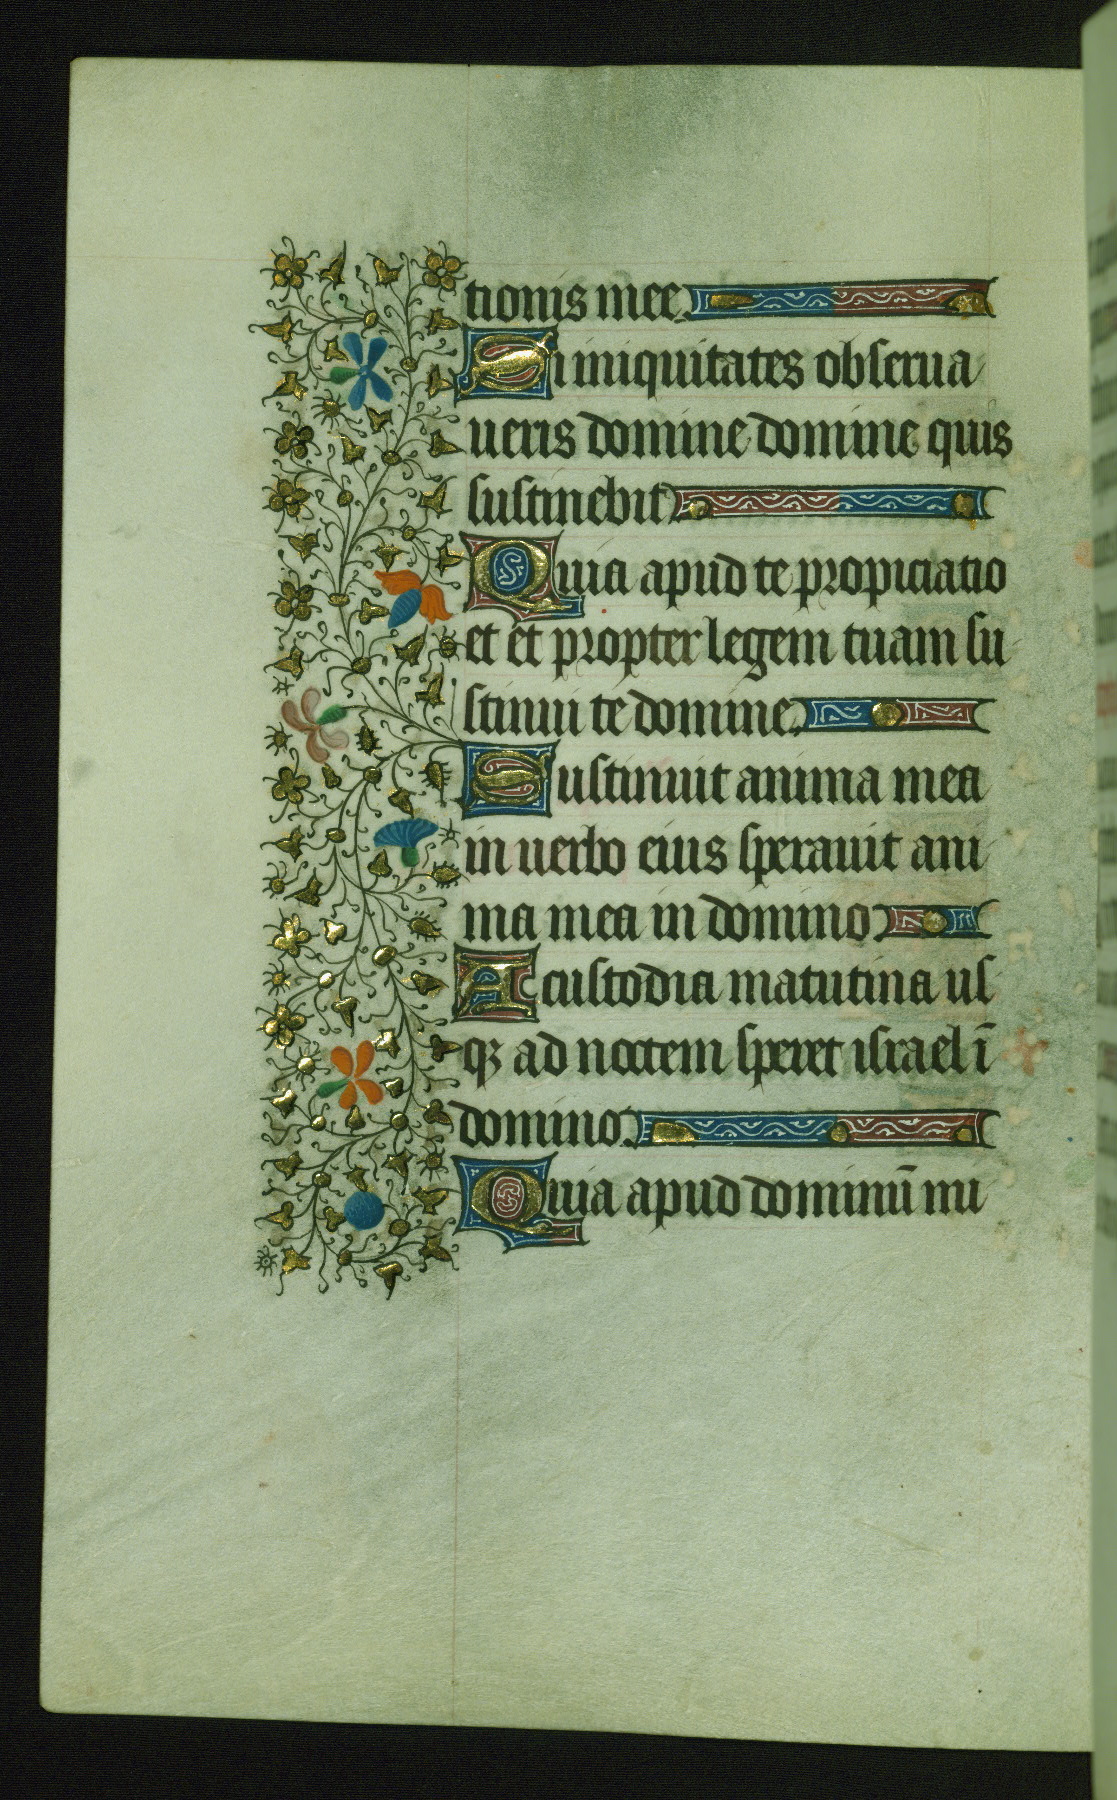 tionis mee
Si iniquitates obserua
ueris domine domine quis
sustinebit
Quia apud te propiciatio
et et propter legem tuam su
stinui te domine
Sustinuit anima mea
in uerbo eius sperauit ani
ma mea in domino
A custodia matutina us
qꝫ ad noctem speret israel ī
domino
Quia apud dominū mi